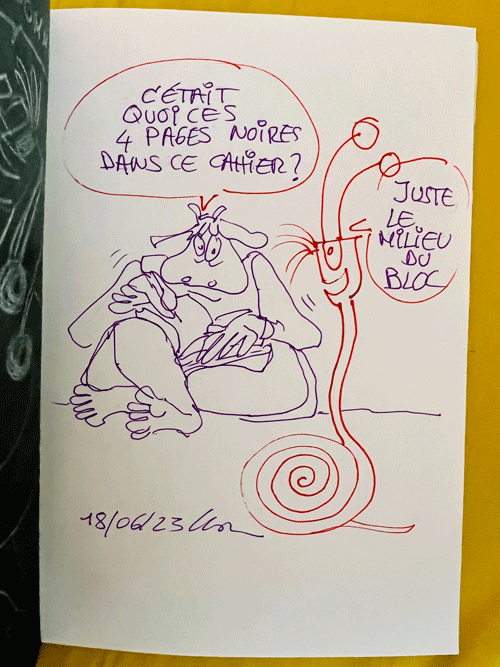 C'ÉTAIT
QUOI CES
4 PAGES NOIRES
DANS CE CAHIER?
JUSTE
LE
MILIEU
DU
BLOC
18/06/23